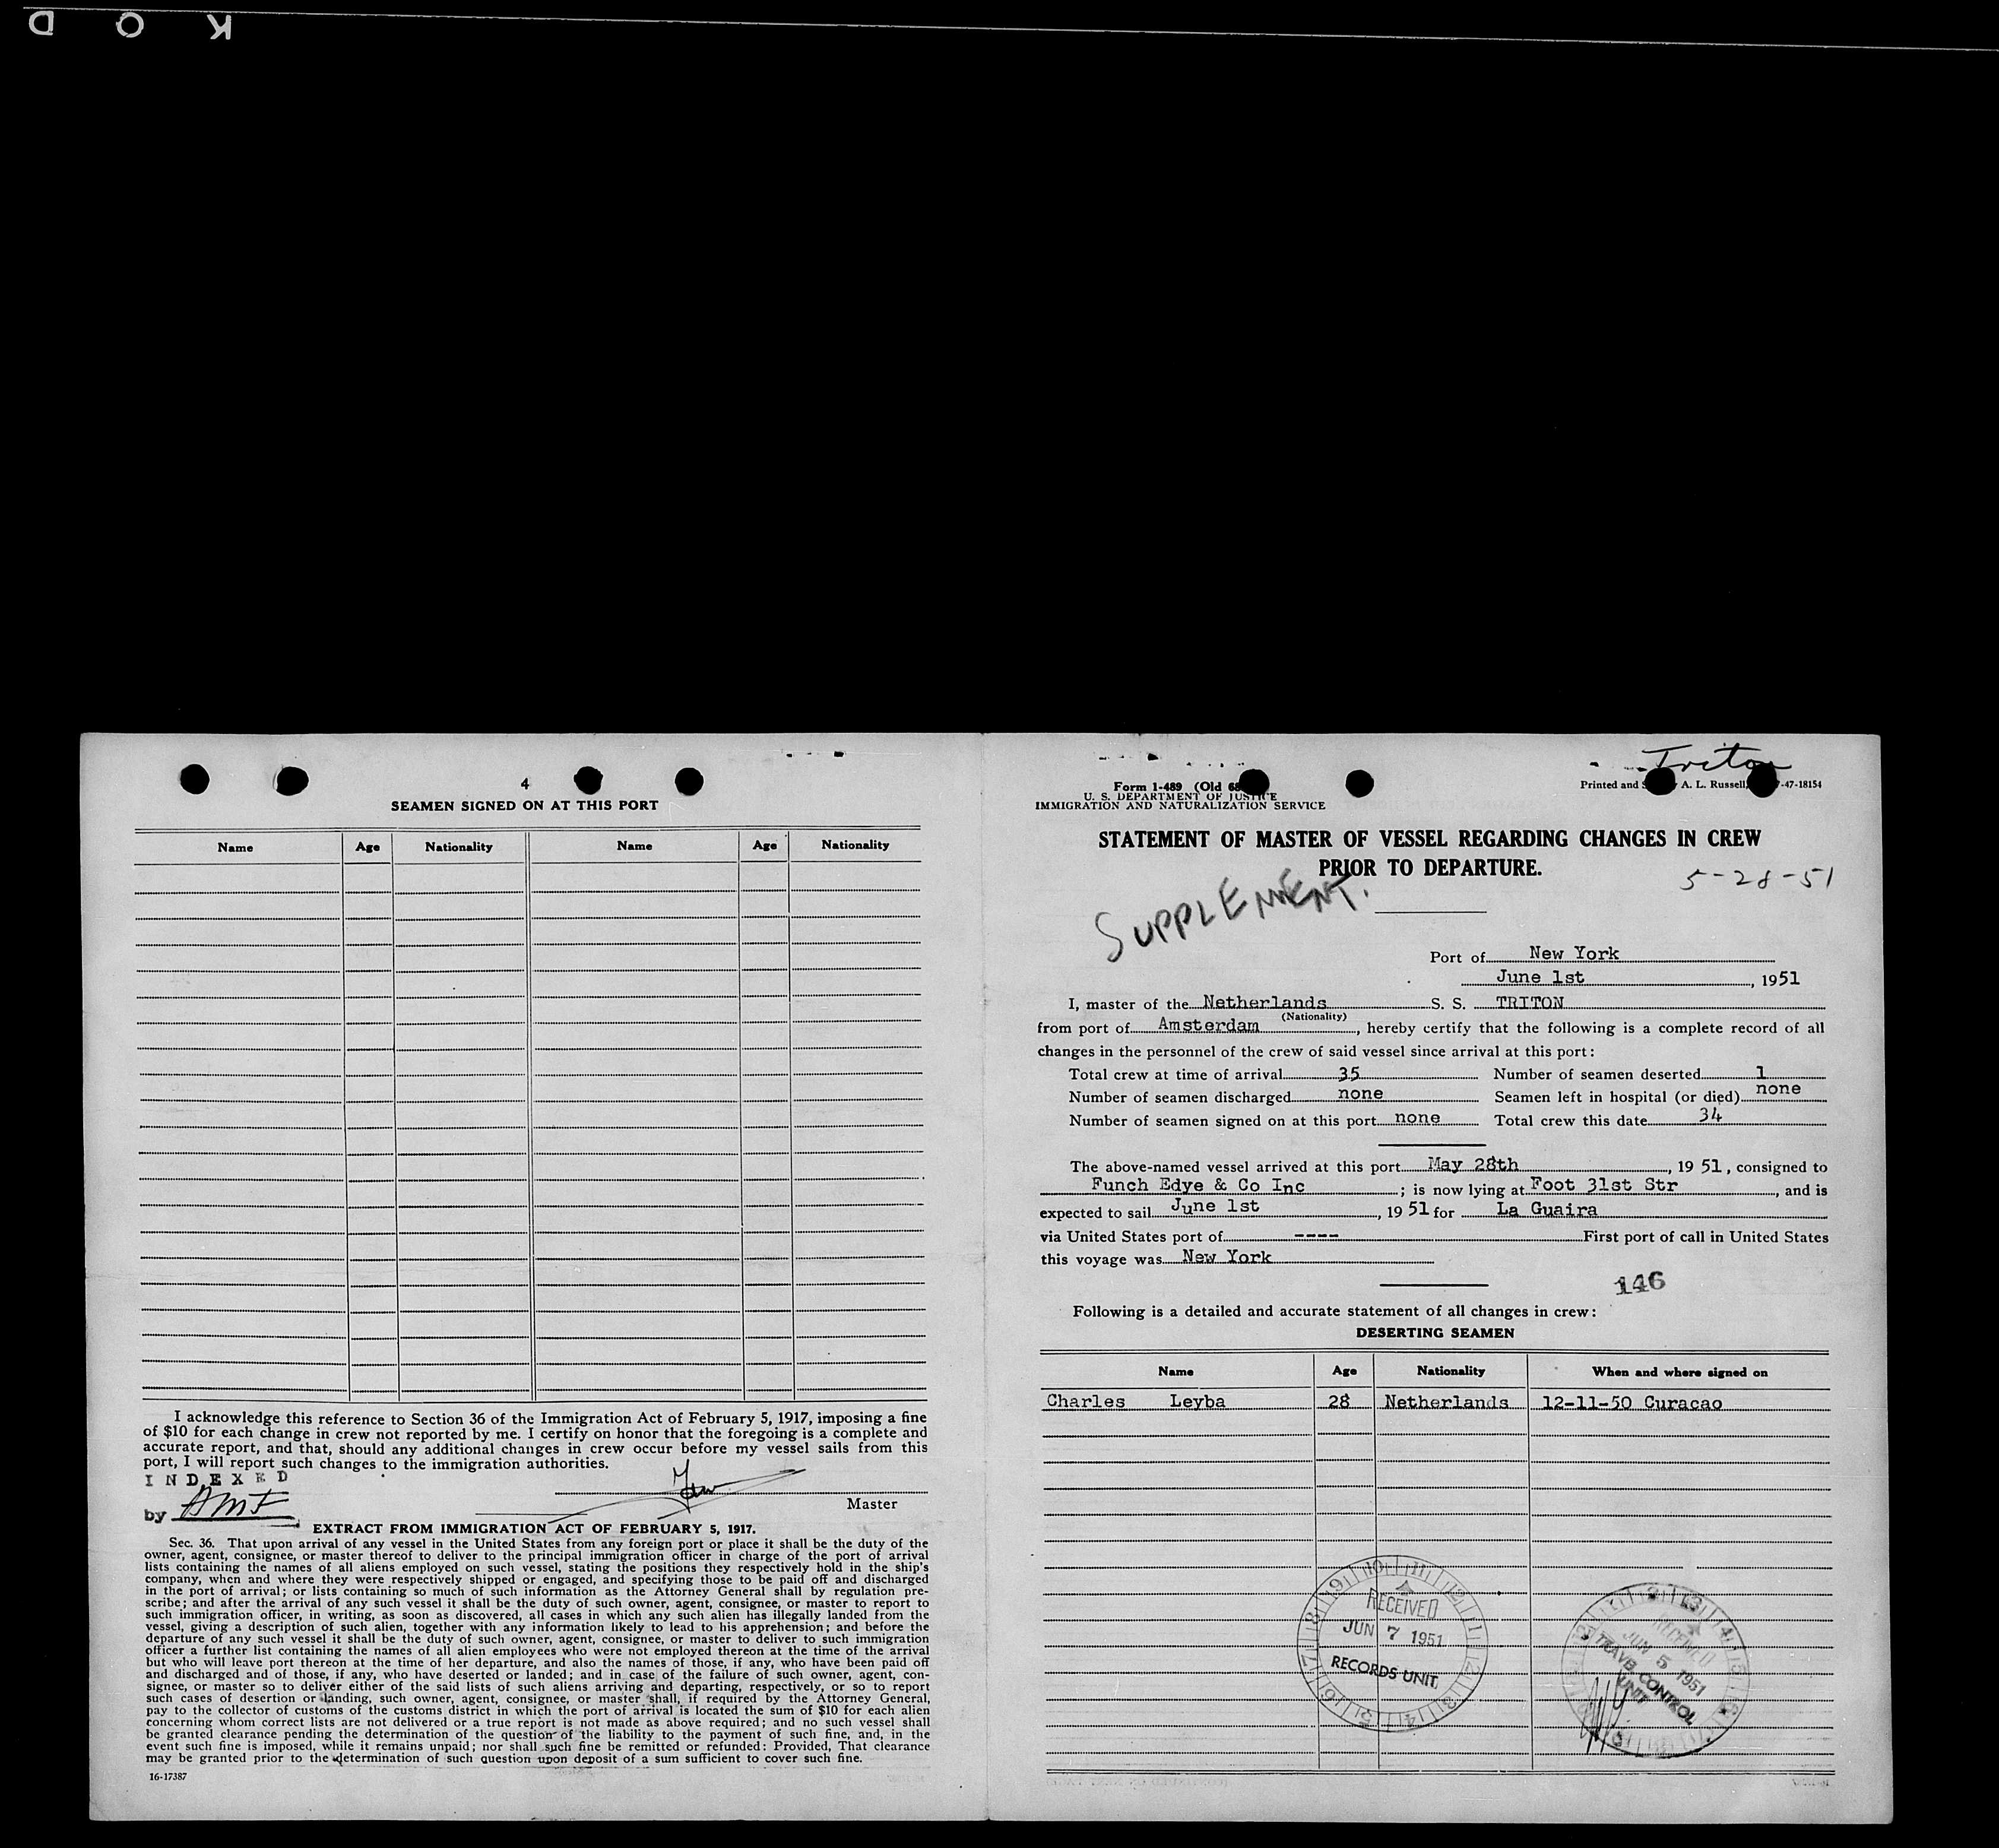 K O D
4
SEAMEN SIGNED ON AT THIS PORT
Name Age Nationality Name Age Nationality
I acknowledge this reference to Section 36 of the Immigration Act of February 5, 1917, imposing a fine
of $10 for each change in crew not reported by me. I certify on honor that the foregoing is a complete and
accurate report, and that, should any additional changes in crew occur before my vessel sails from this
port, I will report such changes to the immigration authorities.
INDEXED
by AMF
Master
EXTRACT FROM IMMIGRATION ACT OF FEBRUARY 5, 1917.
Sec. 36. That upon arrival of any vessel in the United States from any foreign port or place it shall be the duty of the
owner, agent, consignee, or master thereof to deliver to the principal immigration officer in charge of the port of arrival
lists containing the names of all aliens employed on such vessel, stating the positions they respectively hold in the ship's
company, when and where they were respectively shipped or engaged, and specifying those to be paid off and discharged
in the port of arrival; or lists containing so much of such information as the Attorney General shall by regulation pre-
scribe; and after the arrival of any such vessel it shall be the duty of such owner, agent, consignee, or master to report to
such immigration officer, in writing, as soon as discovered, all cases in which any such alien has illegally landed from the
vessel, giving a description of such alien, together with any information likely to lead to his apprehension; and before the
departure of any such vessel it shall be the duty of such owner, agent, consignee, or master to deliver to such immigration
officer a further list containing the names of all alien employees who were not employed thereon at the time of the arrival
but who will leave port thereon at the time of her departure, and also the names of those, if any, who have been paid off
and discharged and of those, if any, who have deserted or landed; and in case of the failure of such owner, agent, con-
signee, or master so to deliver either of the said lists of such aliens arriving and departing, respectively, or so to report
such cases of desertion or landing, such owner, agent, consignee, or master shall, if required by the Attorney General,
pay to the collector of customs of the customs district in which the port of arrival is located the sum of $10 for each alien
concerning whom correct lists are not delivered or a true report is not made as above required; and no such vessel shall
be granted clearance pending the determination of the question of the liability to the payment of such fine, and, in the
event such fine is imposed, while it remains unpaid; nor shall such fine be remitted or refunded: Provided, That clearance
may be granted prior to the determination of such question upon deposit of a sum sufficient to cover such fine.
16-17387
Triton
Form 1-489 (Old 68
U. S. DEPARTMENT OF JUSTICE
IMMIGRATION AND NATURALIZATION SERVICE
Printed and S A. L. Russell, -47-18154
STATEMENT OF MASTER OF VESSEL REGARDING CHANGES IN CREW
PRIOR TO DEPARTURE.
5-28-51
SUPPLEMENT.
Port of New York
June 1st, 1951
I, master of the Netherlands S. S. TRITON
(Nationality)
from port of Amsterdam, hereby certify that the following is a complete record of all
changes in the personnel of the crew of said vessel since arrival at this port:
Total crew at time of arrival 35 Number of seamen deserted 1
Number of seamen discharged none Seamen left in hospital (or died) none
Number of seamen signed on at this port none Total crew this date 34
The above-named vessel arrived at this port May 28th, 19 51, consigned to
Funch Edye & Co Inc; is now lying at Foot 31st Str, and is
expected to sail June 1st, 19 51 for La Guaira
via United States port of ---- First port of call in United States
this voyage was New York
146
Following is a detailed and accurate statement of all changes in crew:
DESERTING SEAMEN
Name Age Nationality When and where signed on
Charles Leyba 28 Netherlands 12-11-50 Curacao
RECEIVED
JUN 7 1951
RECORDS UNIT
RECEIVED
JUN 5 1951
CONTROL
UNIT